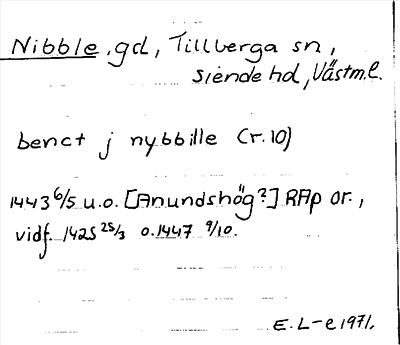 Nibble, gd, Tillberga sn,
Siende hd, Västm.l.
benct j nybbille (r.10)
1443 6/5 u.o. [Anundshög?] RAp or.,
vidf. 1425 25/3 o. 1447 9/10.
E. L-e 1971.